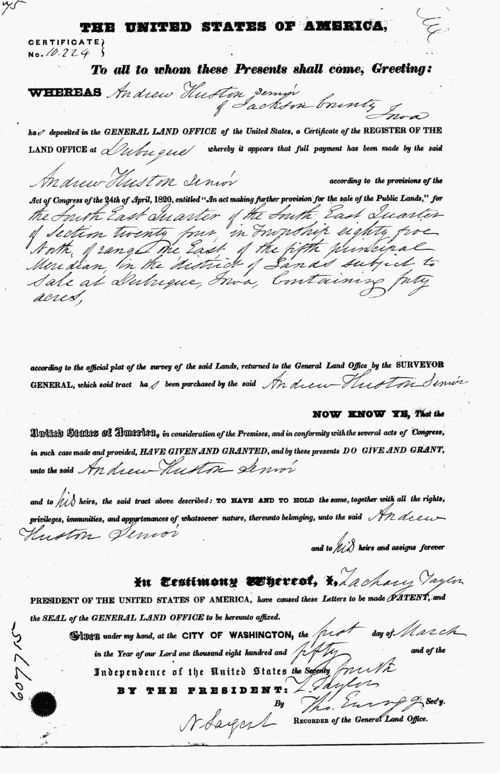 THE UNITED STATES OF AMERICA,
CERTIFICATE
No. 10.224
To all to whom these Presents shall come, Greeting:
WHEREAS Andrew Huston Senior
of Jackson County
Iowa
has deposited in the GENERAL LAND OFFICE of the United States, a Certificate of the REGISTER OF THE
LAND OFFICE at Dubuque whereby it appears that full payment has been made by the said
Andrew Huston Senior according to the provisions of the
Act of Congress of the 24th of April, 1820, entitled "An act making further provision for the sale of the Public Lands," for
the South East Quarter of the South East Quarter
of Section twenty four, in Township eighty five
North, of range One East, of the fifth principal
Meridian, in the district of Lands subject to
Sale at Dubuque, Iowa, Containing forty
acres,
according to the official plat of the survey of the said Lands, returned to the General Land Office by the SURVEYOR
GENERAL, which said tract has been purchased by the said Andrew Huston Senior
NOW KNOW YE, That the
United States of America, in consideration of the Premises, and in conformity with the several acts of Congress,
in such case made and provided, HAVE GIVEN AND GRANTED, and by these presents DO GIVE AND GRANT,
unto the said Andrew Huston Senior
and to his heirs, the said tract above described: TO HAVE AND TO HOLD the same, together with all the rights,
privileges, immunities, and appurtenances of whatsoever nature, thereunto belonging, unto the said Andrew
Huston Senior
and to his heirs and assigns forever
In Testimony Whereof, I, Zachary Taylor
PRESIDENT OF THE UNITED STATES OF AMERICA, have caused these Letters to be made PATENT, and
the SEAL of the GENERAL LAND OFFICE to be hereunto affixed.
Given under my hand, at the CITY OF WASHINGTON, the first day of March
in the Year of our Lord one thousand eight hundred and fifty and of the
Independence of the United States the Seventy fourth
BY THE PRESIDENT: Z. Taylor
By Tho. Ewing Sec'y.
N Sargent RECORDER of the General Land Office.
607715